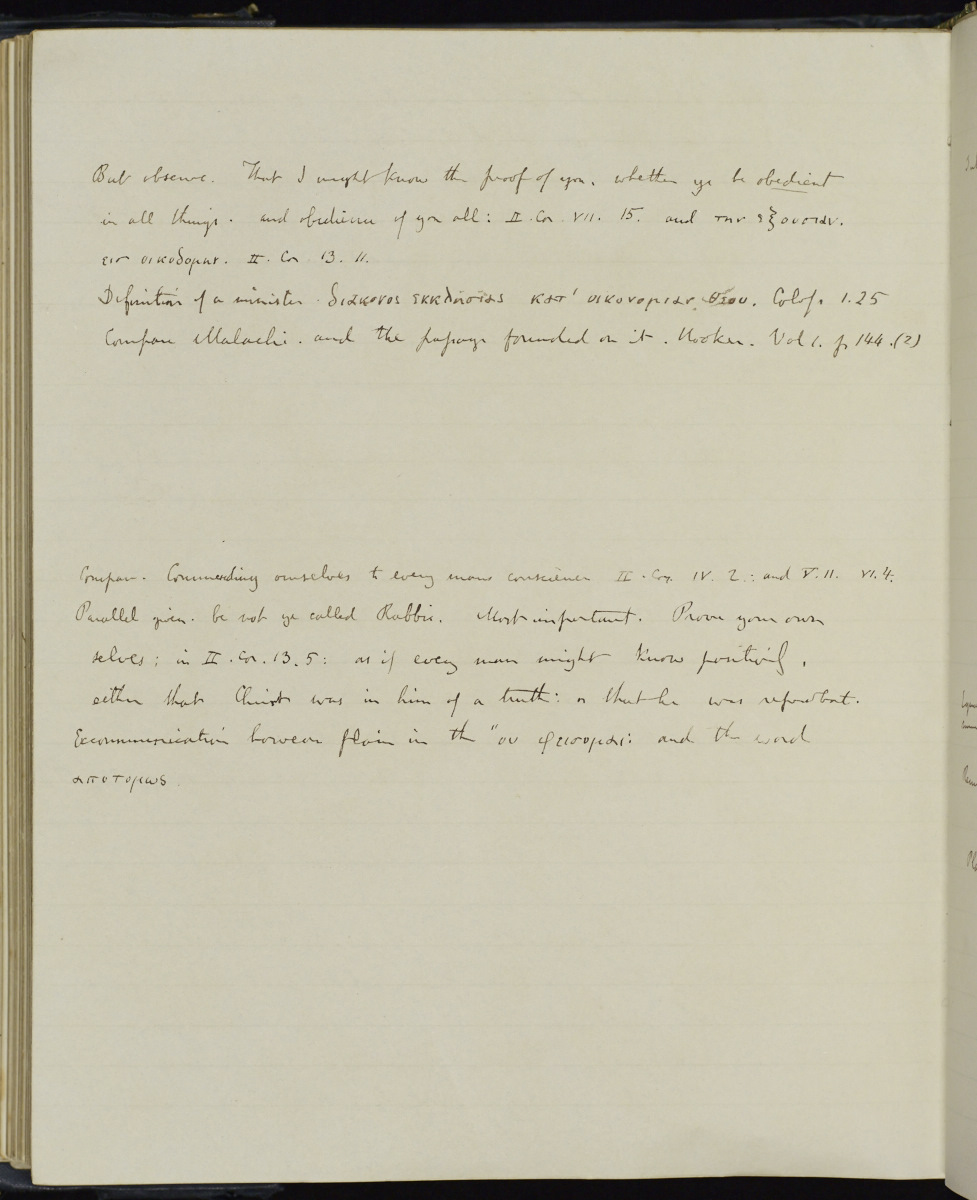 But observe. That I might know the proof of you, whether ye be obedient
in all things. and obedience of you all: II. Cor VII. 15. and την εξουσιαν.
εισ οικοδομην. II. Cor 13. 11.
Definition of a minister. διακονος εκκλησιας κατ' οικονομιαν θεου. Colos. 1.25
Compare Malachi. and the passage founded on it. Hooker. Vol 1. p 144.(2)
Compare. Commending ourselves to every mans conscience II. Cor. IV. 2.: and V. 11. VI. 4.
Parallel given. be not ye called Rabbi. Most important. Prove your own
selves; in II. Cor. 13. 5: as if every man might know positively,
either that Christ was in him of a truth: or that he was reprobate.
Excommunication however plain in the "ου φεισομαι: and the word
αποτομως